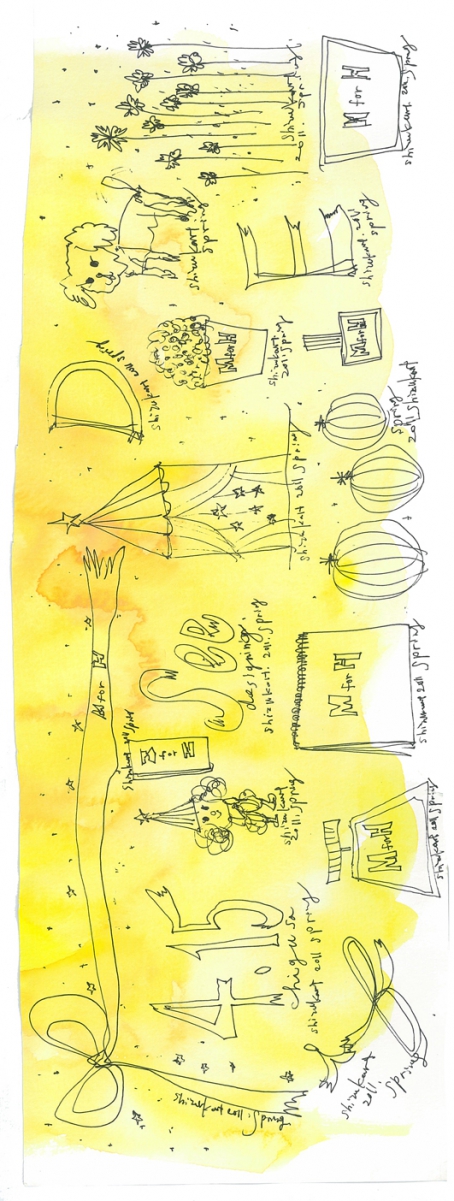 M for H
shizukart 2011. Spring
D
See
designing.
shizukart. 2011. spring
4.15
shizukart 2011 spring
shizukart
spring
M for H
shizukart
2011 spring
shizukart 2011 spring
M for H
shizukart
2011. spring
shizukart.
2011. spring
shizukart
2011.
spring
M for H
shizukart 2011 spring
M for H
shizukart 2011 spring
spring
2011 shizukart
M for H
E
shizukart. 2011
spring
M for H
shizukart 2011. spring